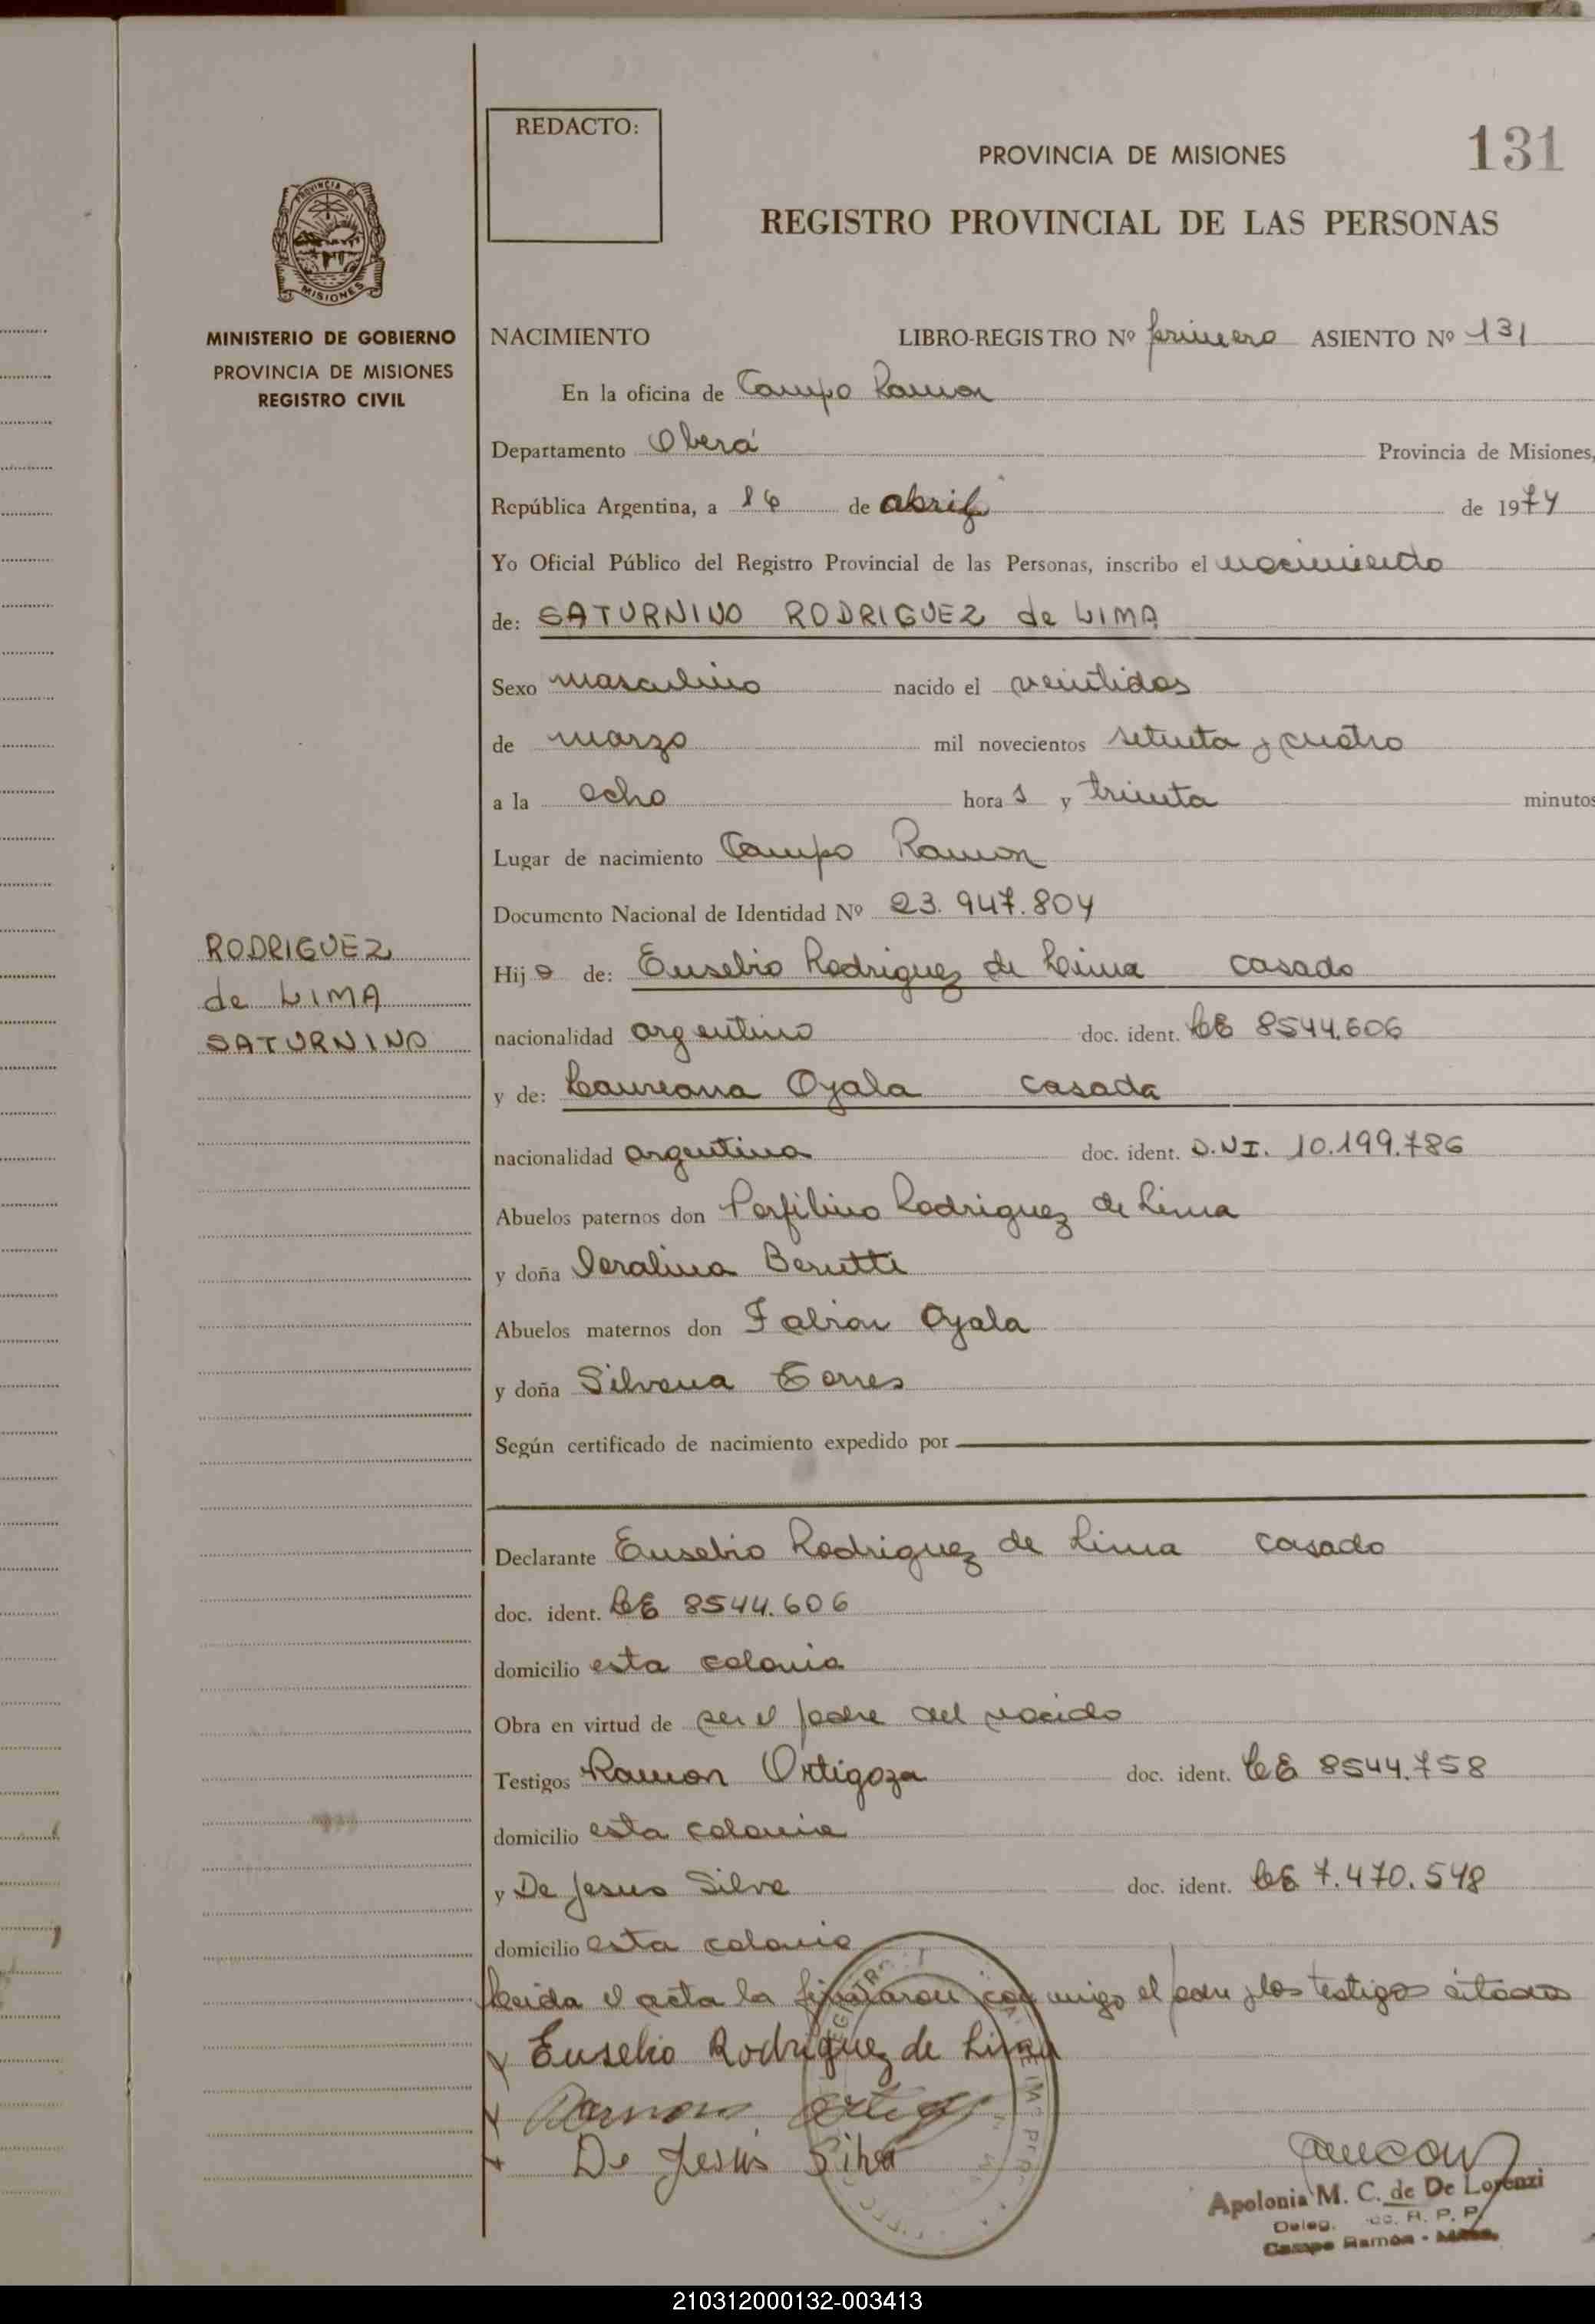 REDACTO:
PROVINCIA DE MISIONES
131
REGISTRO PROVINCIAL DE LAS PERSONAS
PROVINCIA DE
MISIONES
MINISTERIO DE GOBIERNO
PROVINCIA DE MISIONES
REGISTRO CIVIL
NACIMIENTO LIBRO-REGISTRO Nº primero ASIENTO Nº 131
En la oficina de Campo Ramon
Departamento Oberá Provincia de Misiones,
República Argentina, a 16 de abril de 1974
Yo Oficial Público del Registro Provincial de las Personas, inscribo el nacimiento
de: SATURNINO RODRIGUEZ de LIMA
Sexo masculino nacido el veintidos
de marzo mil novecientos setenta y cuatro
a la ocho hora s y treinta minutos
Lugar de nacimiento Campo Ramon
Documento Nacional de Identidad Nº 23.947.804
RODRIGUEZ
de LIMA
SATURNINO
Hij o de: Eusebio Rodriguez de Lima casado
nacionalidad argentino doc. ident. LE 8544.606
y de: Laureana Ayala casada
nacionalidad argentina doc. ident. D.NI. 10.199.786
Abuelos paternos don Porfilino Rodriguez de Lima
y doña Berutti
Abuelos maternos don Fabian Ayala
y doña Silvana Torres
Según certificado de nacimiento expedido por
Declarante Eusebio Rodriguez de Lima casado
doc. ident. LE 8544.606
domicilio esta colonia
Obra en virtud de ser el padre del nacido
Testigos Ramon Ortigoza doc. ident. LE 8544.758
domicilio esta colonia
y De Jesus Silva doc. ident. LE 7.470.548
domicilio esta colonia
Leida el acta la firmaron conmigo el padre y los testigos citados
Eusebio Rodriguez de Lima
Ramon
De Jesús Silva
Apolonia M. C. de De Lorenzi
Deleg. R. P. P.
Campo Ramón - Mnes.
210312000132-003413